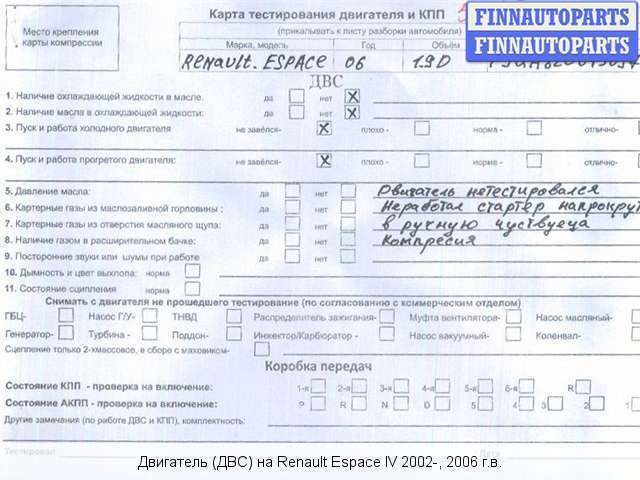 Место крепления
карты компрессии
Карта тестирования двигателя и КПП
(прикалывать к листу разборки автомобиля)
Марка, модель Год Объём
Renault. ESPACE 06 1.9D
FINNAUTOPARTS
FINNAUTOPARTS
ДВС
1. Наличие охлаждающей жидкости в масле. да нет X
2. Наличие масла в охлаждающей жидкости: да нет X
3. Пуск и работа холодного двигателя не завёлся- X плохо - норма - отлично-
4. Пуск и работа прогретого двигателя: не завёлся- X плохо - норма - отлично-
5. Давление масла: да нет Двигатель нетестировался
6. Картерные газы из маслозаливной горловины : да нет Неработал стартер напрокрут
7. Картерные газы из отверстия масляного щупа: да нет в ручную чуствуеца
8. Наличие газом в расширительном бачке: да нет Компресия
9. Посторонние звуки или шумы при работе да нет
10. Дымность и цвет выхлопа: норма
11. Состояние сцепления норма
Снимать с двигателя не прошедшего тестирование (по согласованию с коммерческим отделом)
ГБЦ- Насос Г/У- ТНВД Распределитель зажигания- Муфта вентилятора- Насос масляный-
Генератор- Турбина - Поддон- Инжектор/Карбюратор - Насос вакуумный- Коленвал-
Сцепление только 2-хмассовое, в сборе с маховиком-
Коробка передач
Состояние КПП - проверка на включение: 1-я 2-я 3-я 4-я 5-я 6-я R
Состояние АКПП - проверка на включение: P R N D 5 4 3 2 1
Другие замечания (по работе ДВС и КПП), комплектность:
Тестировал Дата
Двигатель (ДВС) на Renault Espace IV 2002-, 2006 г.в.